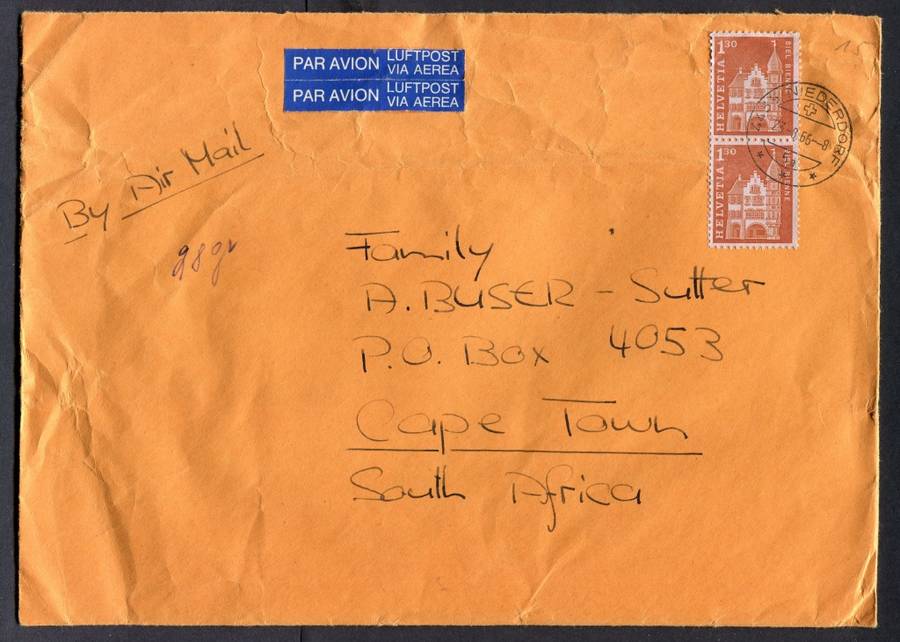 PAR AVION LUFTPOST VIA AEREA
PAR AVION LUFTPOST VIA AEREA
HELVETIA 1 30 BIEL BIENNE
HELVETIA 1 30 BIEL BIENNE
NIEDERDORF
15
By Air Mail
98 gr
Family
A. BUSER - Sutter
P.O. Box 4053
Cape Town
South Africa